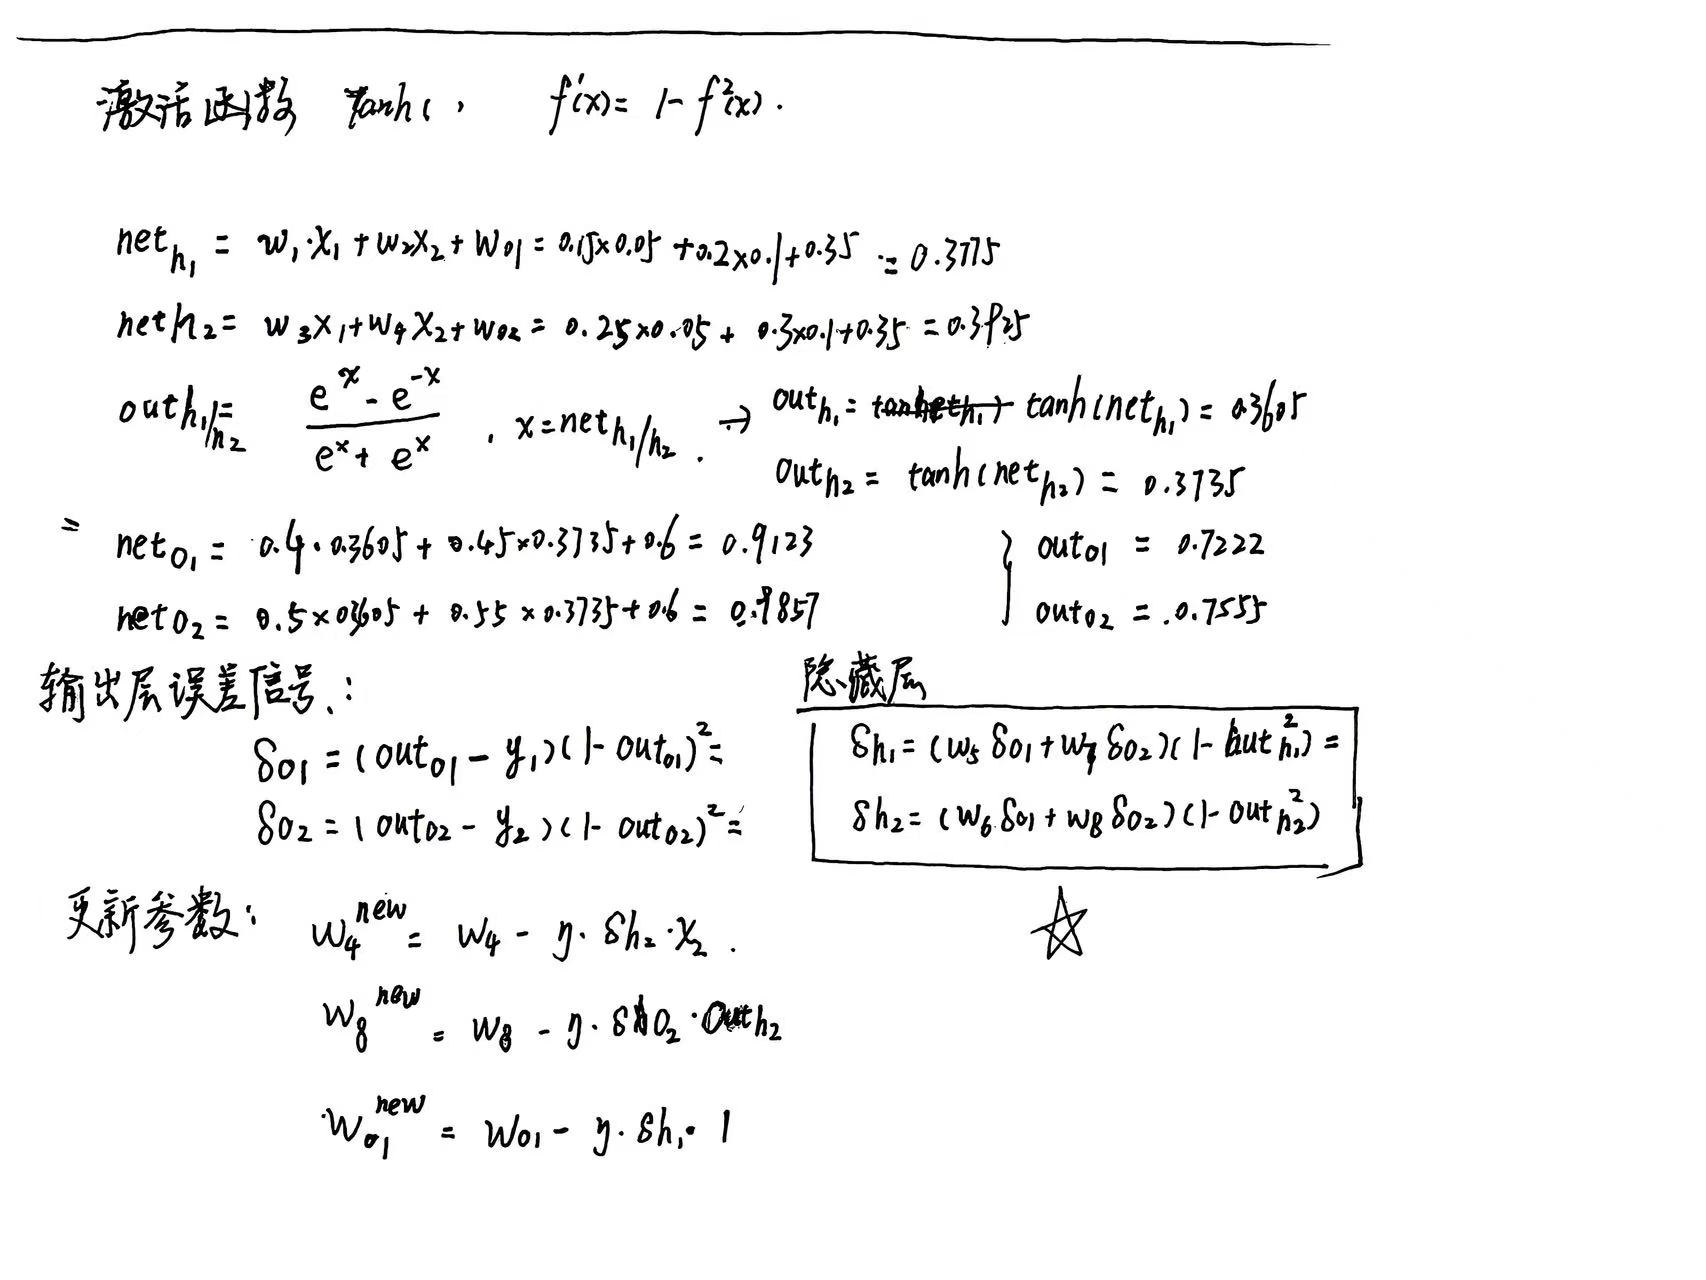 激活函数 tanh( , f'(x) = 1 - f²(x).
net_h₁ = w₁·x₁ + w₂x₂ + w₀₁ = 0.15×0.05 + 0.2×0.1 + 0.35 = 0.3775
net h₂ = w₃x₁ + w₄x₂ + w₀₂ = 0.25×0.05 + 0.3×0.1 + 0.35 = 0.3925
out h₁/h₂ = (e^x - e^-x) / (e^x + e^x) , x = net h₁/h₂ . → out_h₁ = tanh(net_h₁) = 0.3605
out_h₂ = tanh(net_h₂) = 0.3735
= net_o₁ = 0.4·0.3605 + 0.45×0.3735 + 0.6 = 0.9123 } out_o1 = 0.7222
net o₂ = 0.5×0.3605 + 0.55×0.3735 + 0.6 = 0.9857 out_o2 = 0.7555
输出层误差信号: 隐藏层
δ_o1 = (out_o1 - y₁)(1 - out_o1)² = δh₁ = (w₅ δ_o1 + w₇ δ_o2)(1 - out²_h₁) =
δ_o2 = (out_o2 - y₂)(1 - out_o2)² = δh₂ = (w₆ δ_o1 + w₈ δ_o2)(1 - out²_h₂)
更新参数: w₄^new = w₄ - η·δh₂·x₂ .
w₈^new = w₈ - η·δo₂·out h₂
w₀₁^new = w₀₁ - η·δh₁·1